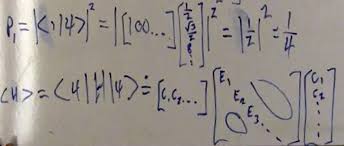 P₁ = |⟨1|ψ⟩|² = |[1 0 0 ...] [1/2 √3/2 0 ⋮]|² = |1/2|² = 1/4
⟨H⟩ = ⟨ψ|H|ψ⟩ ≐ [C₁ C₂ ...] [E₁ E₂ E₃ ⋱] [C₁ C₂ ⋮]